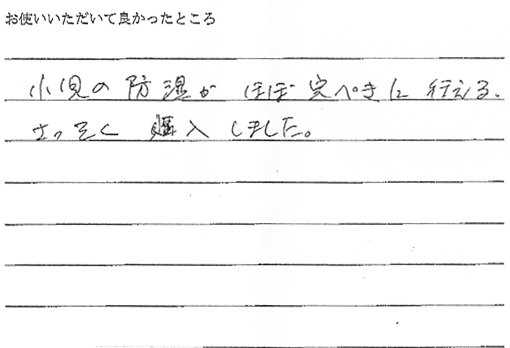 お使いいただいて良かったところ
小児の防湿が ほぼ完ぺきに行える.
さっそく 購入しました。